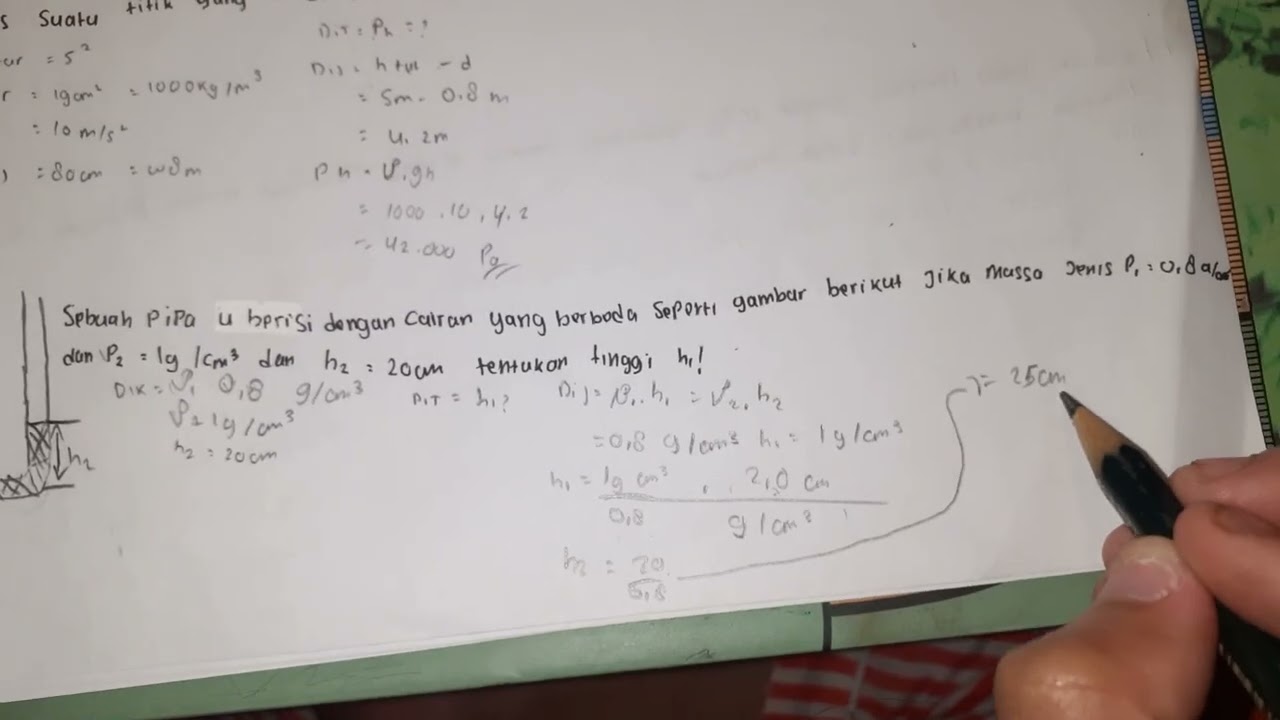 s Suatu titik yang
ar = 5²
r = 1gcm² = 1000Kg/m³
= 10 m/s²
) = 80cm = 008m
DIT = Ph = ?
Dij = h tot - d
= 5m - 0.8 m
= 4.2m
Ph = ρ.gh
= 1000 . 10 . 4.2
= 42.000 Pa
Sebuah PiPa u berisi dengan Cairan yang berboda Seporti gambar berikut Jika Massa Jenis P₁ = 0,8 g/cm
dan ρ₂ = 1g/cm³ dan h₂ = 20cm tentukan tinggi h₁!
DIK = ρ₁ 0,8 g/cm³
ρ₂ = 1g/cm³
h₂ = 20cm
DIT = h₁?
Dij = ρ₁.h₁ = ρ₂.h₂
= 0,8 g/cm³ h₁ = 1g/cm³
h₁ = 1g cm³ . 2,0 cm
0,8 g/cm³
h₁ = 20
0,8
= 25cm
h₂